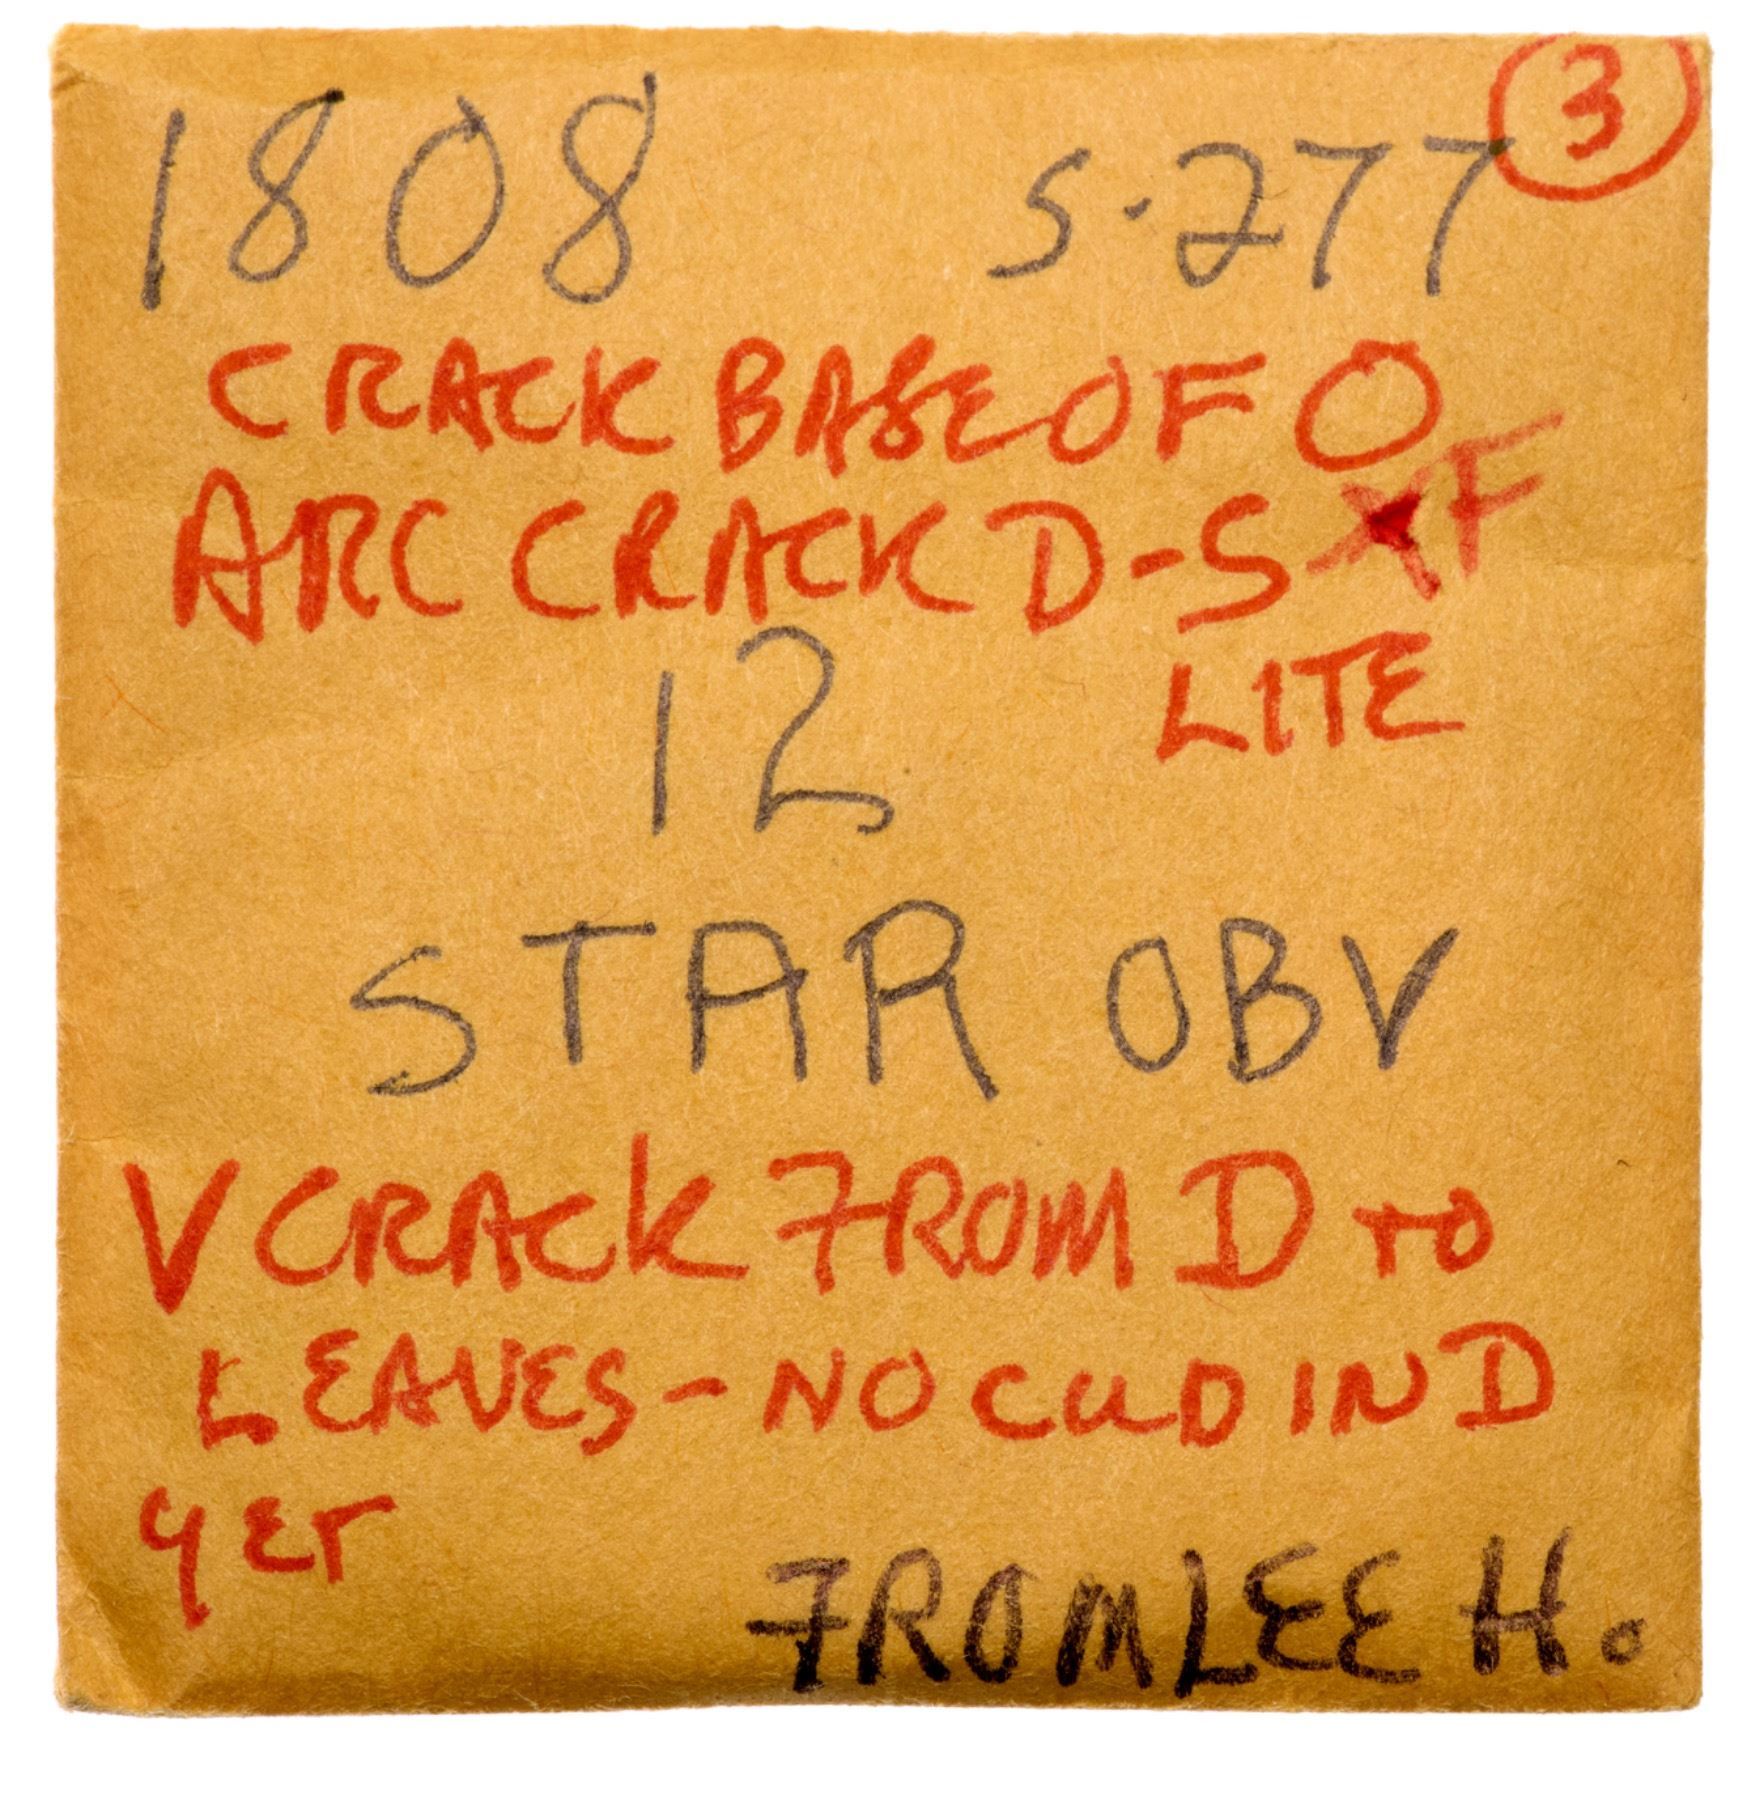 1808 S-277 3
CRACK BASE OF O
ARC CRACK D-S XF
12 LITE
STAR OBV
V CRACK FROM D TO
LEAVES - NO CUD IN D
YET
FROM LEE H.